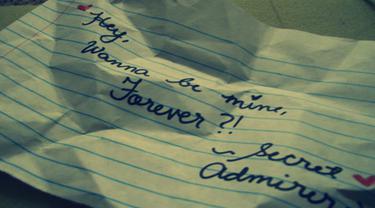 Hey,
Wanna be mine,
Forever ?!
~ Secret
Admirer